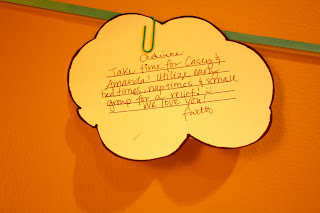 advice
Take time for Casey &
Amanda! Utilize early
bedtimes, naptimes & small
group for a relief! :)
We love you!